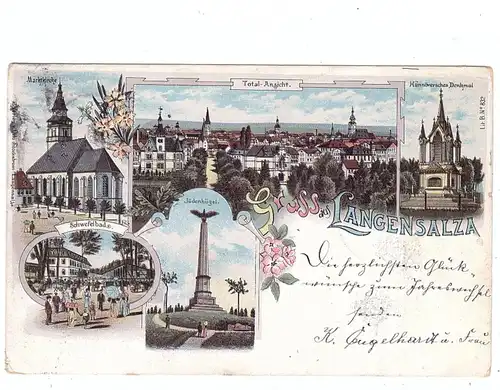 Marktkirche
Total-Ansicht.
Hannöversches Denkmal
Lit. B. No 832
Schwefelbad.
Jüdenhügel.
Gruss aus
LANGENSALZA
Die herzlichsten Glück-
wünsche zum Jahreswechsel
senden
K. Engelhardt u. Frau